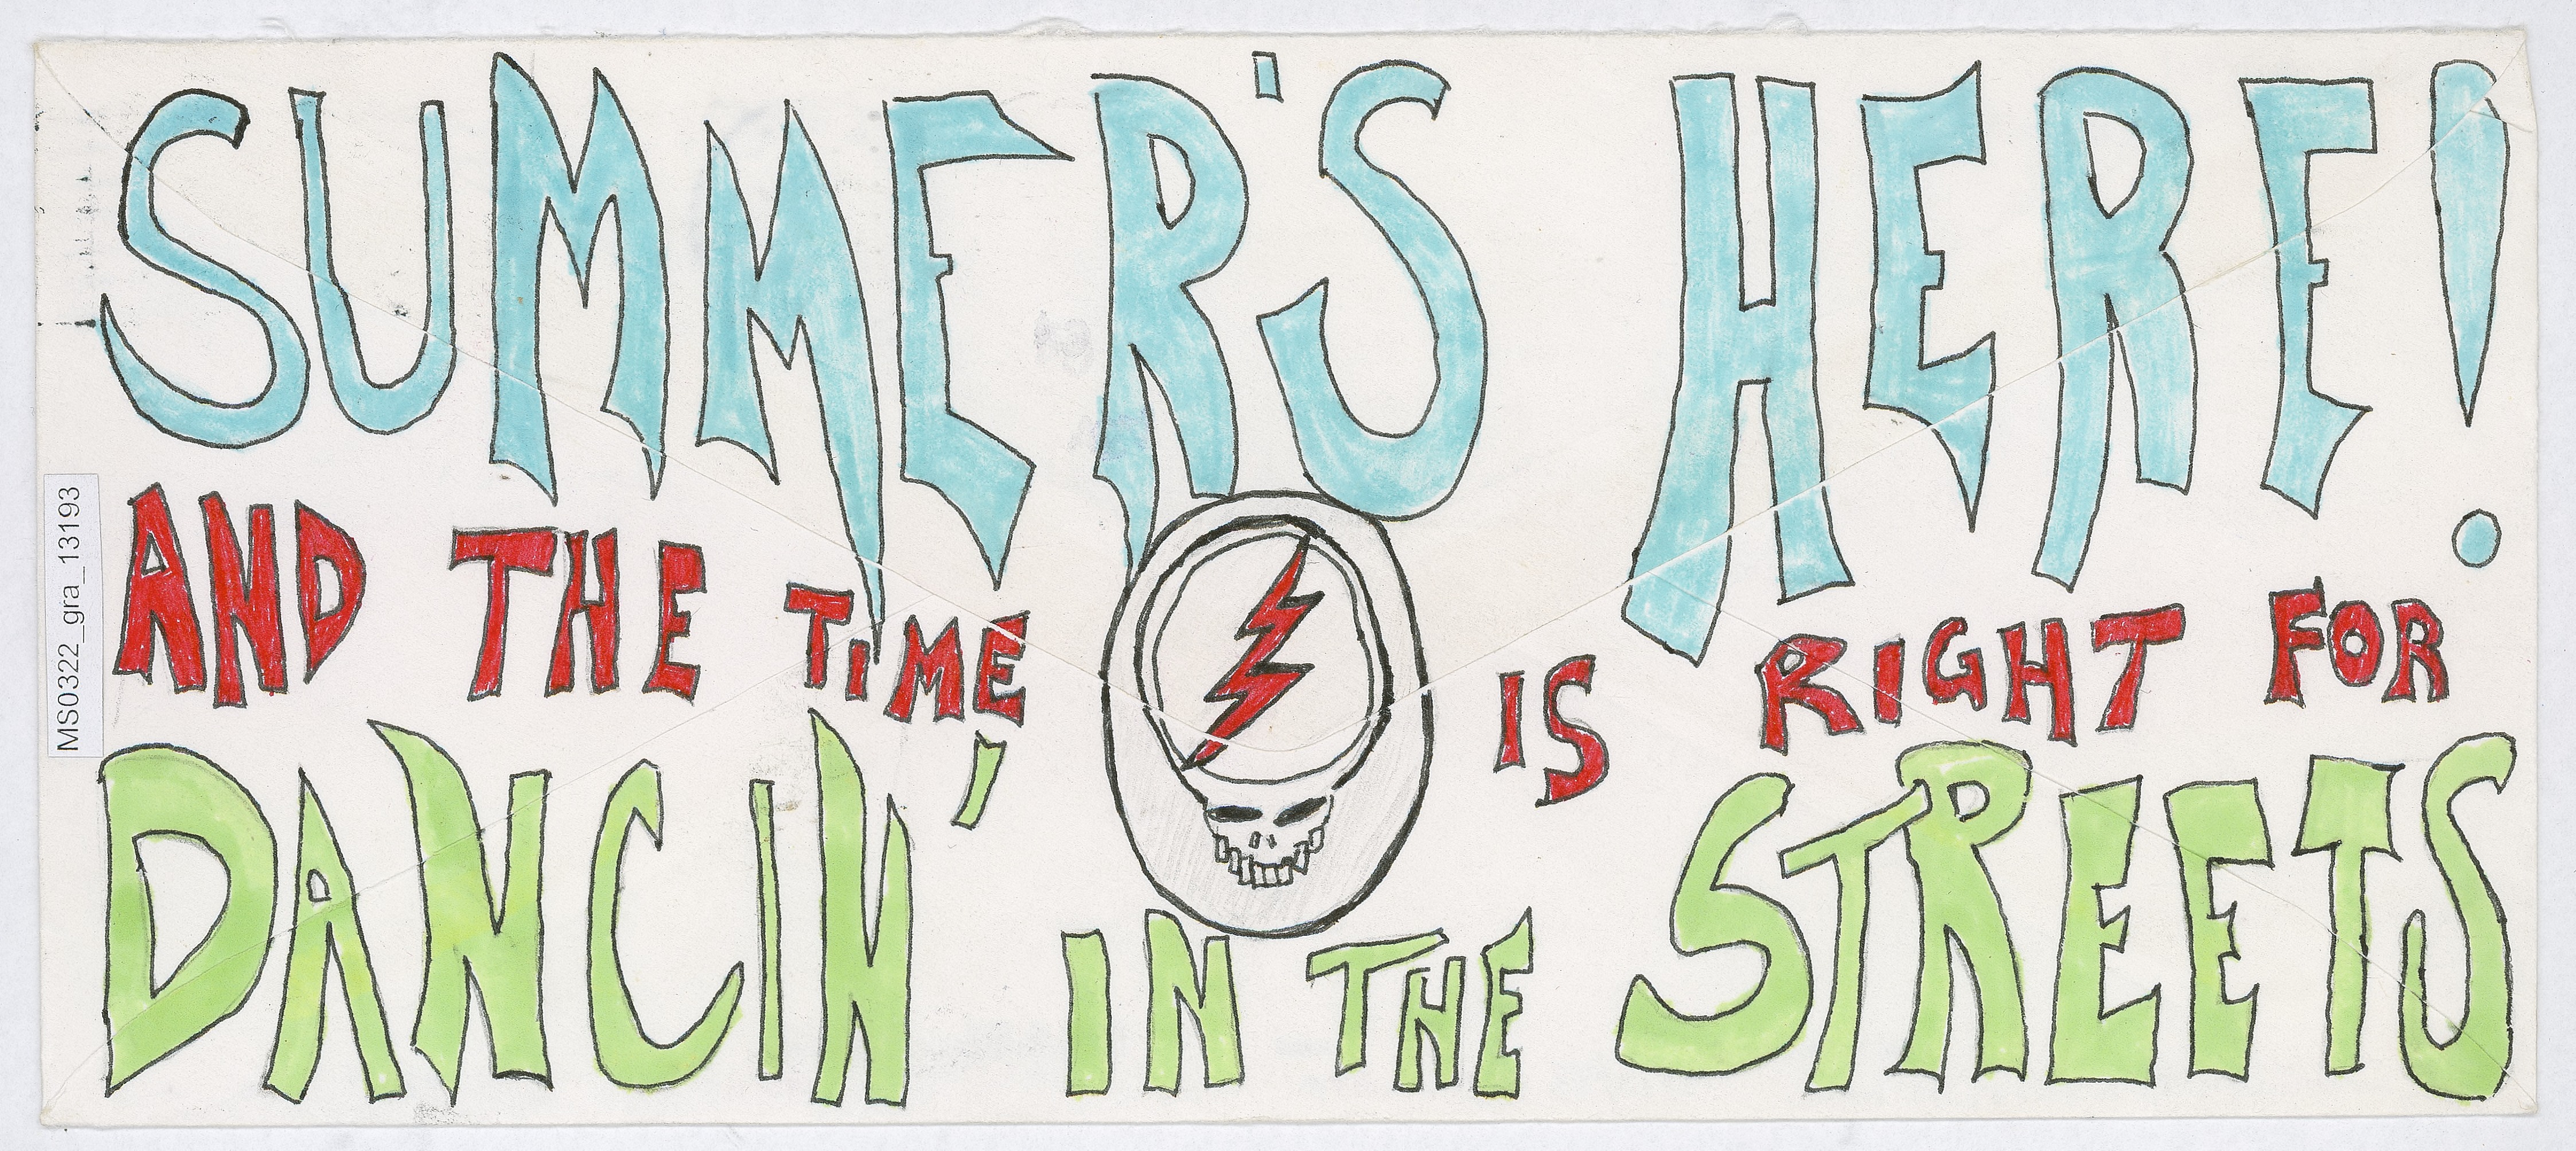 SUMMER'S HERE!
AND THE TIME IS RIGHT FOR
DANCIN' IN THE STREETS
MS0322_gra_13193